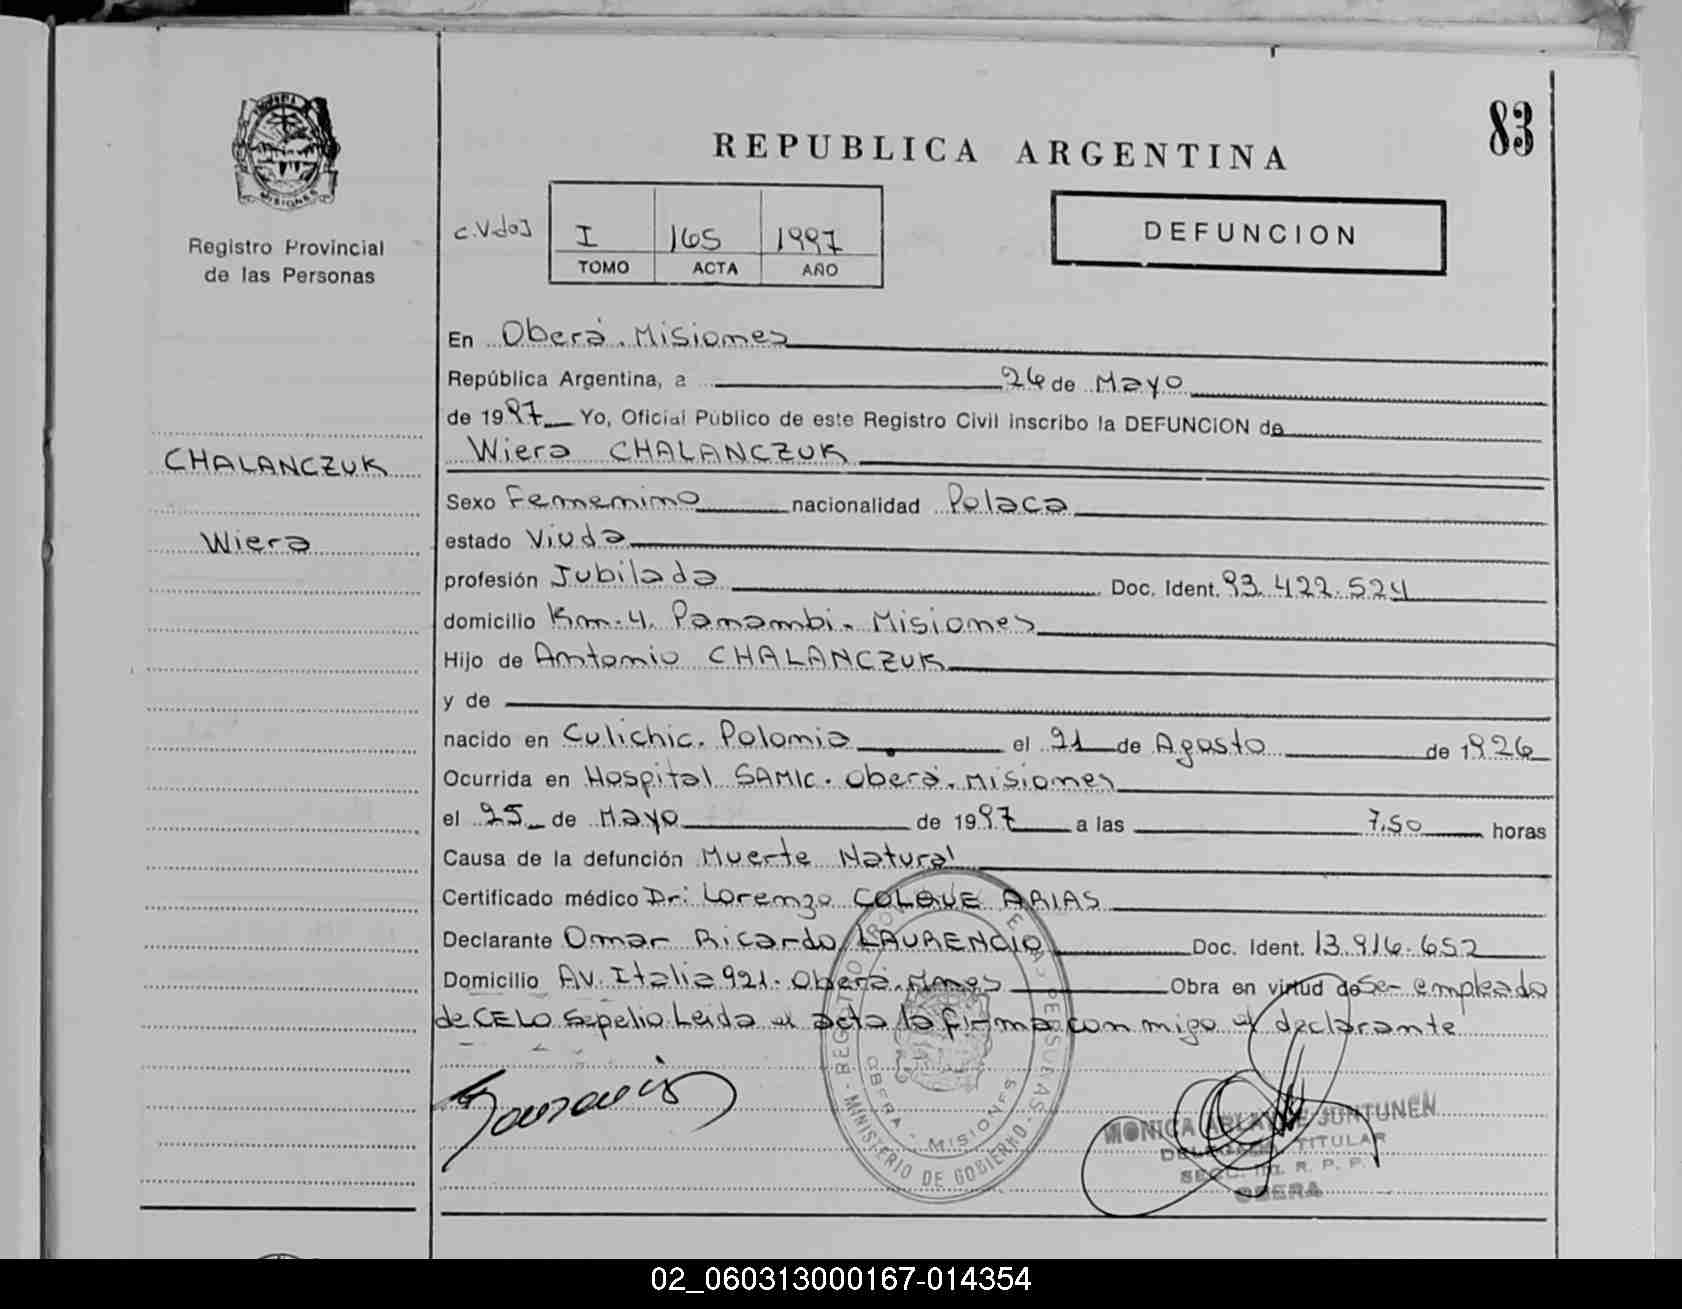 83
REPUBLICA ARGENTINA
MISIONES
Registro Provincial
de las Personas
I 165 1997
TOMO ACTA AÑO
DEFUNCION
CHALANCZUK
Wiera
En Oberá. Misiones
República Argentina, a 26 de Mayo
de 1997 Yo, Oficial Público de este Registro Civil inscribo la DEFUNCION de
Wiera CHALANCZUK
Sexo Femenino nacionalidad Polaca
estado Viuda
profesión Jubilada Doc. Ident. 93.422.524
domicilio Km. 4. Panambi. Misiones
Hijo de Antonio CHALANCZUK
y de
nacido en Culichic. Polonia el 21 de Agosto de 1926
Ocurrida en Hospital SAMIC. Oberá. Misiones
el 25 de Mayo de 1997 a las 7,50 horas
Causa de la defunción Muerte Natural
Certificado médico Dr: Lorenzo COLQUE ARIAS
Declarante Omar Ricardo LAURENCIO Doc. Ident. 13.916.652
Domicilio Av. Italia 921. Oberá. Mnes Obra en virtud de Ser empleado
de CELO Sepelio. Leida el acta la firma con migo el declarante
MINISTERIO DE GOBIERNO
OBERA - MISIONES
MONICA JUNTUNEN
TITULAR
R. P. P.
OBERA
02_060313000167-014354